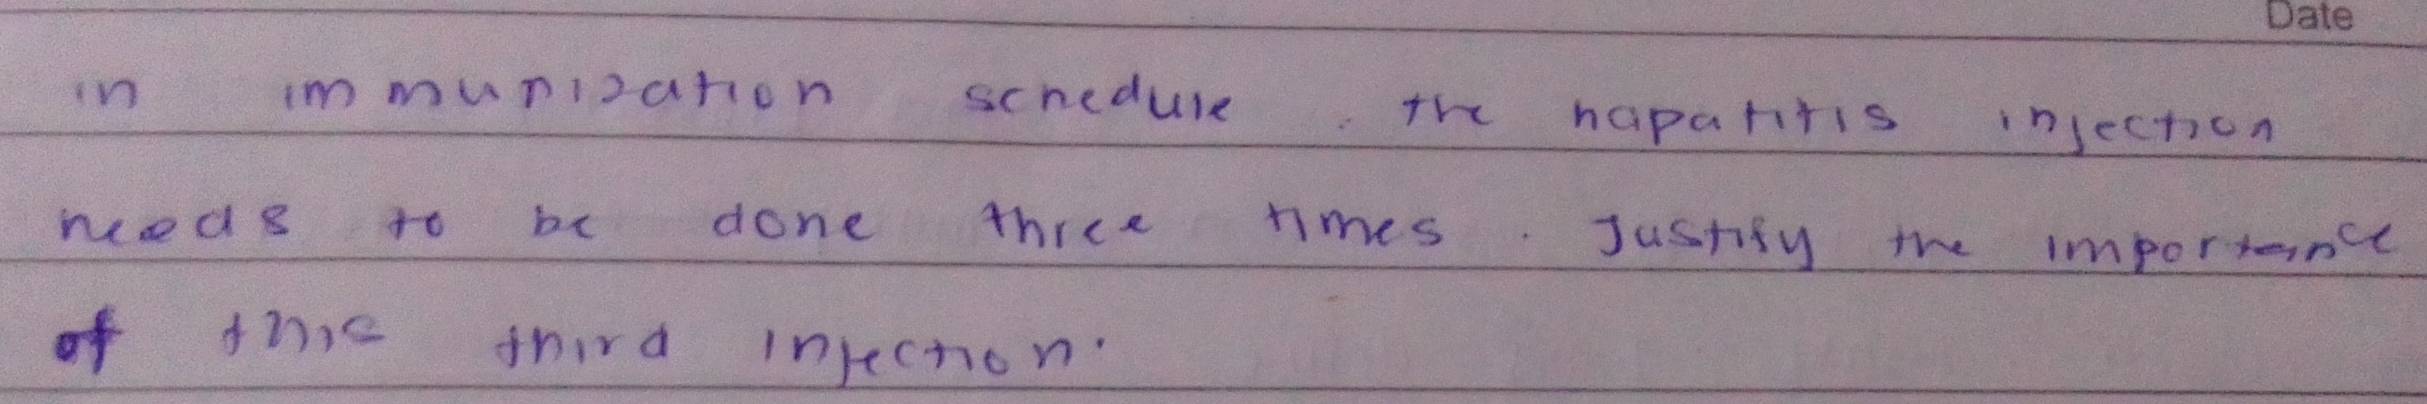 Date
in immunization schedule. the hapatitis injection
needs to be done three times. Justify the importance
of this third injection.